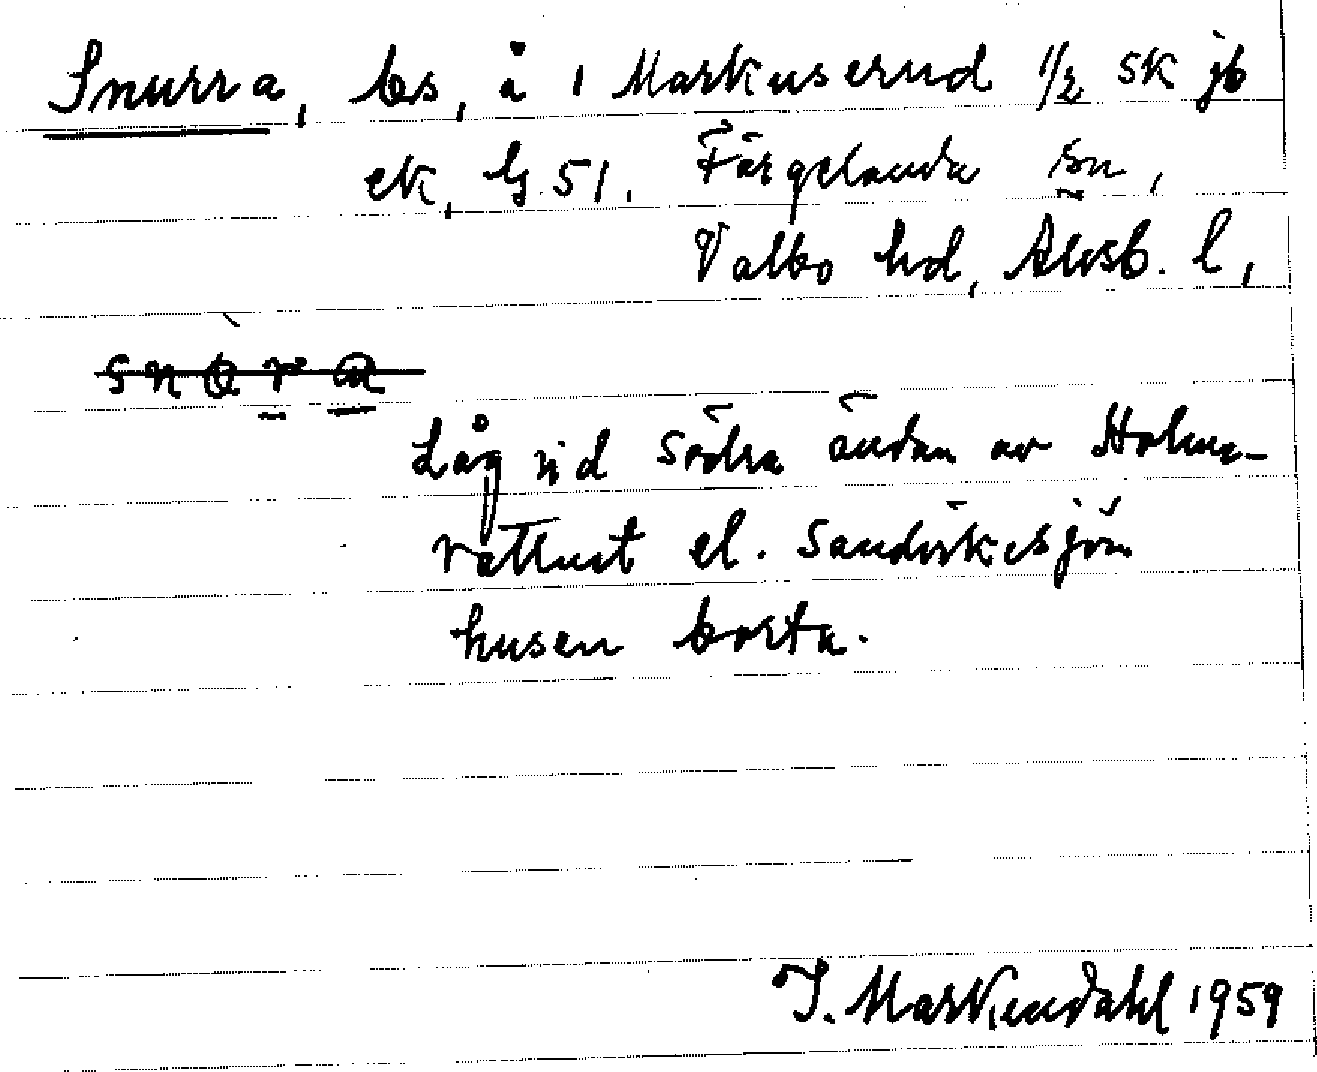 Snurra, bs, å 1 Markuserud 1/2 sk jb
ek, G 51. Färgelanda sn,
Valbo hd, Älvsb. l,
Låg vid södra ändan av Holme-
vattnet el. Sandvikesjön
husen borta.
I. Markendahl 1959